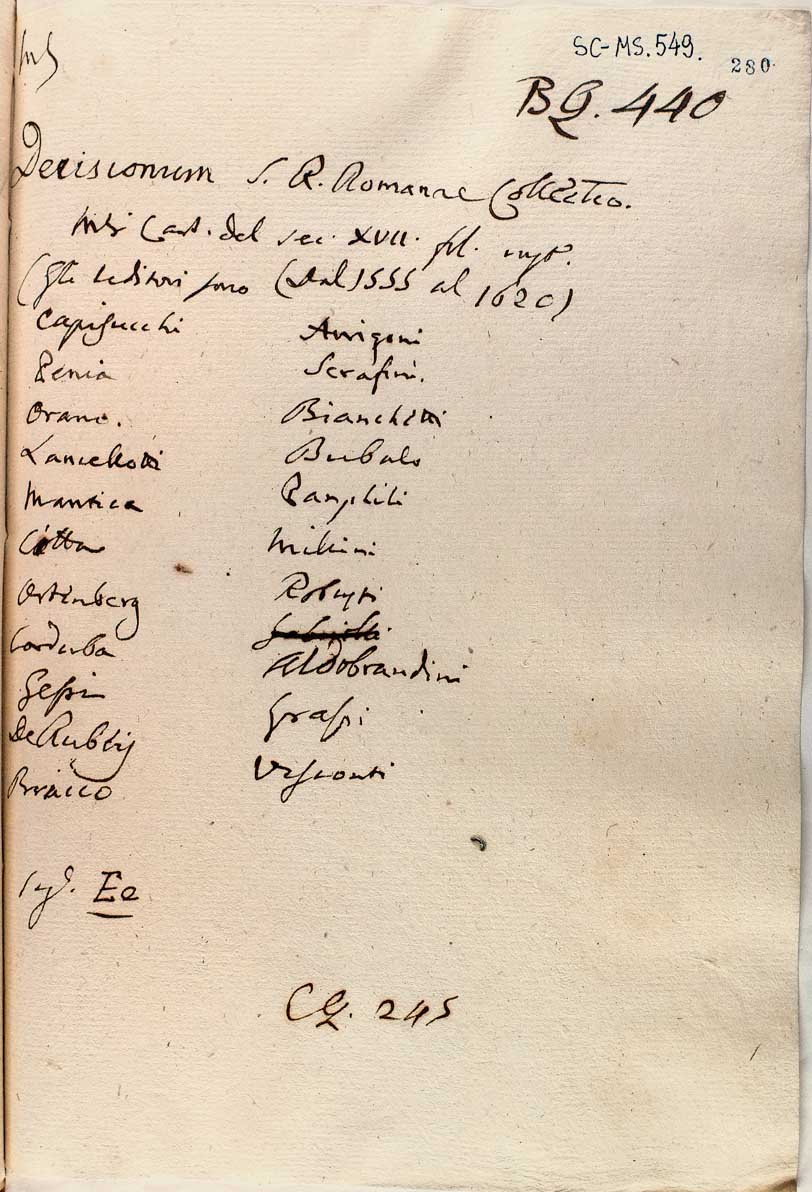 MS
SC-MS. 549.
280
BG. 440
Decisionum S. R. Romanae Collectio.
MS Cart. del sec. XVII. fol.
(Gli Uditori sono (Dal 1555 al 1620)
Capisucchi
Penia
Orano.
Lancellotti
Mantica
Cotta
Ortenberg
Corduba
Gessi
De Rubeis
Arrigoni
Serafini.
Bianchetti
Bubalo
Pamphili
Millini
Robusti
Aldobrandini
Grassi
Visconti
Ee
CG. 245